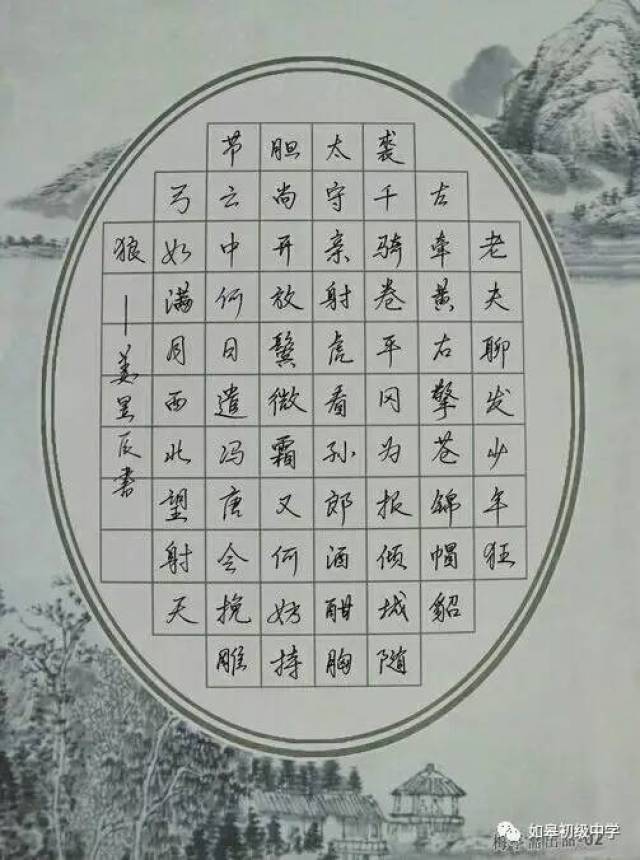 老夫聊发少年狂
左牵黄右擎苍锦帽貂
裘千骑卷平冈为报倾城随
太守亲射虎看孙郎酒酣胸
胆尚开放鬓微霜又何妨持
节云中何日遣冯唐会挽雕
弓如满月西北望射天
狼—姜昱辰书
如皋初级中学
出品-02